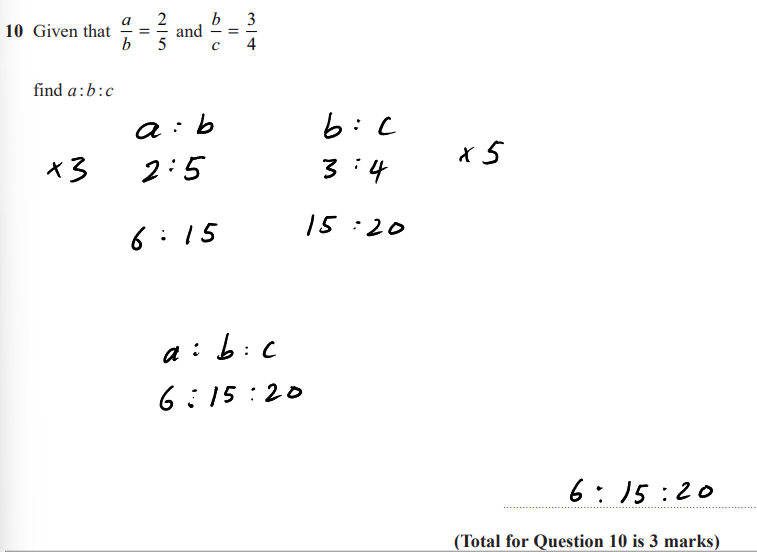 10 Given that a/b = 2/5 and b/c = 3/4
find a : b : c
a : b b : c
×3 2 : 5 3 : 4 × 5
6 : 15 15 : 20
a : b : c
6 : 15 : 20
6 : 15 : 20
(Total for Question 10 is 3 marks)